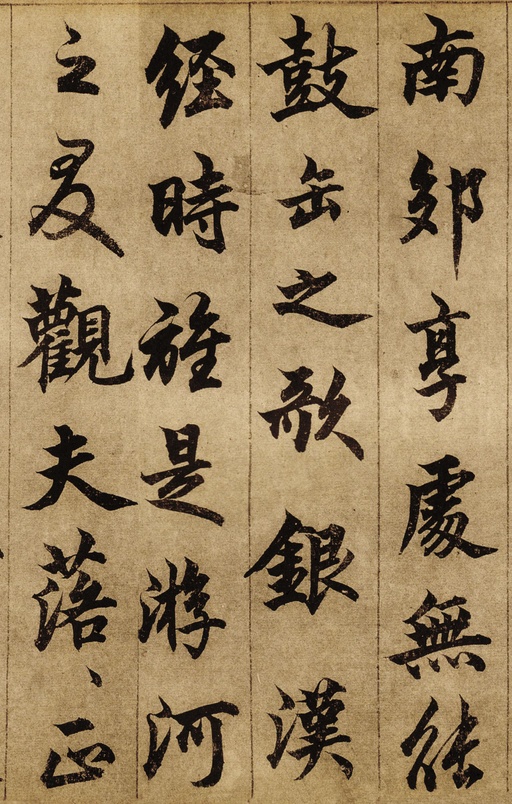 南郊享處無能
鼓缶之歌銀漢
經時旌是游河
之叟觀夫落、正